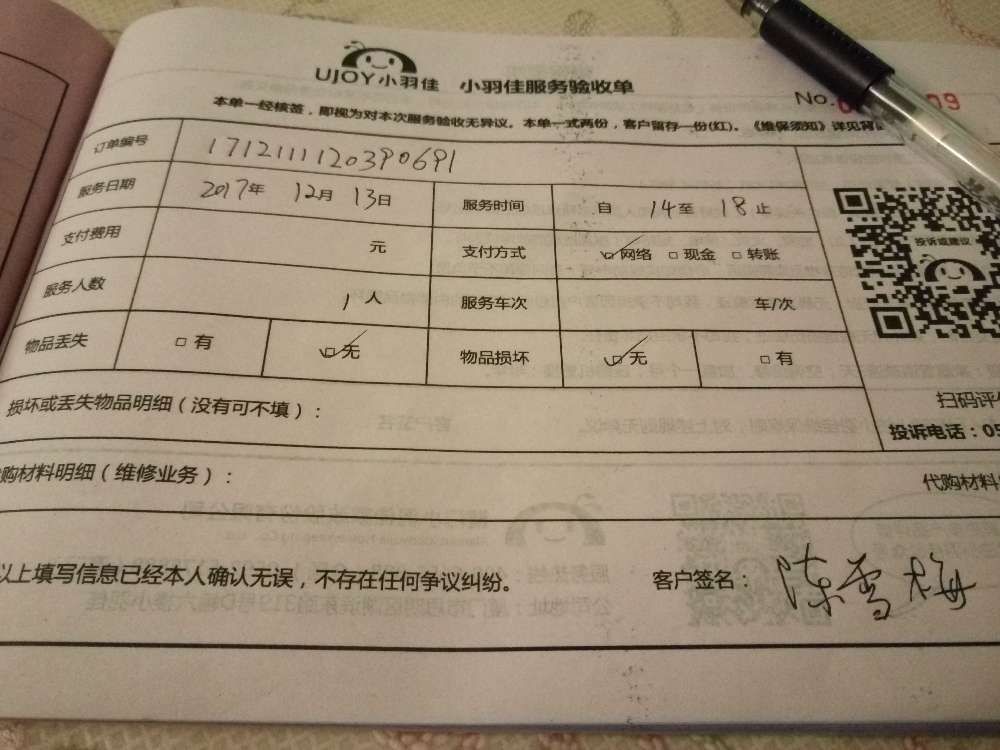 UJOY小羽佳 小羽佳服务验收单
No. 09
本单一经核签，即视为对本次服务验收无异议。本单一式两份，客户留存一份(红)。《维保须知》详见背面
订单编号 1712111120390691
服务日期 2017年 12月 13日 服务时间 自 14至 18止
支付费用 元 支付方式 ☑网络 □现金 □转账
投诉或建议
服务人数 1人 服务车次 车/次
物品丢失 □有 ☑无 物品损坏 ☑无 □有
损坏或丢失物品明细（没有可不填）：
扫码评
投诉电话：05
购材料明细（维修业务）：
代购材料
以上填写信息已经本人确认无误，不存在任何争议纠纷。 客户签名：陈雪梅